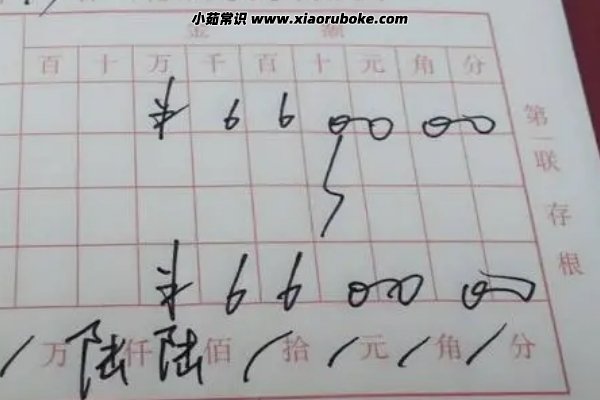 小茹常识 www.xiaoruboke.com
金 额
百 十 万 千 百 十 元 角 分
¥ 6 6 0 0 0 0
¥ 6 6 0 0 0 0
/ 万 陆 仟 陆 佰 / 拾 / 元 / 角 / 分
第一联 存根